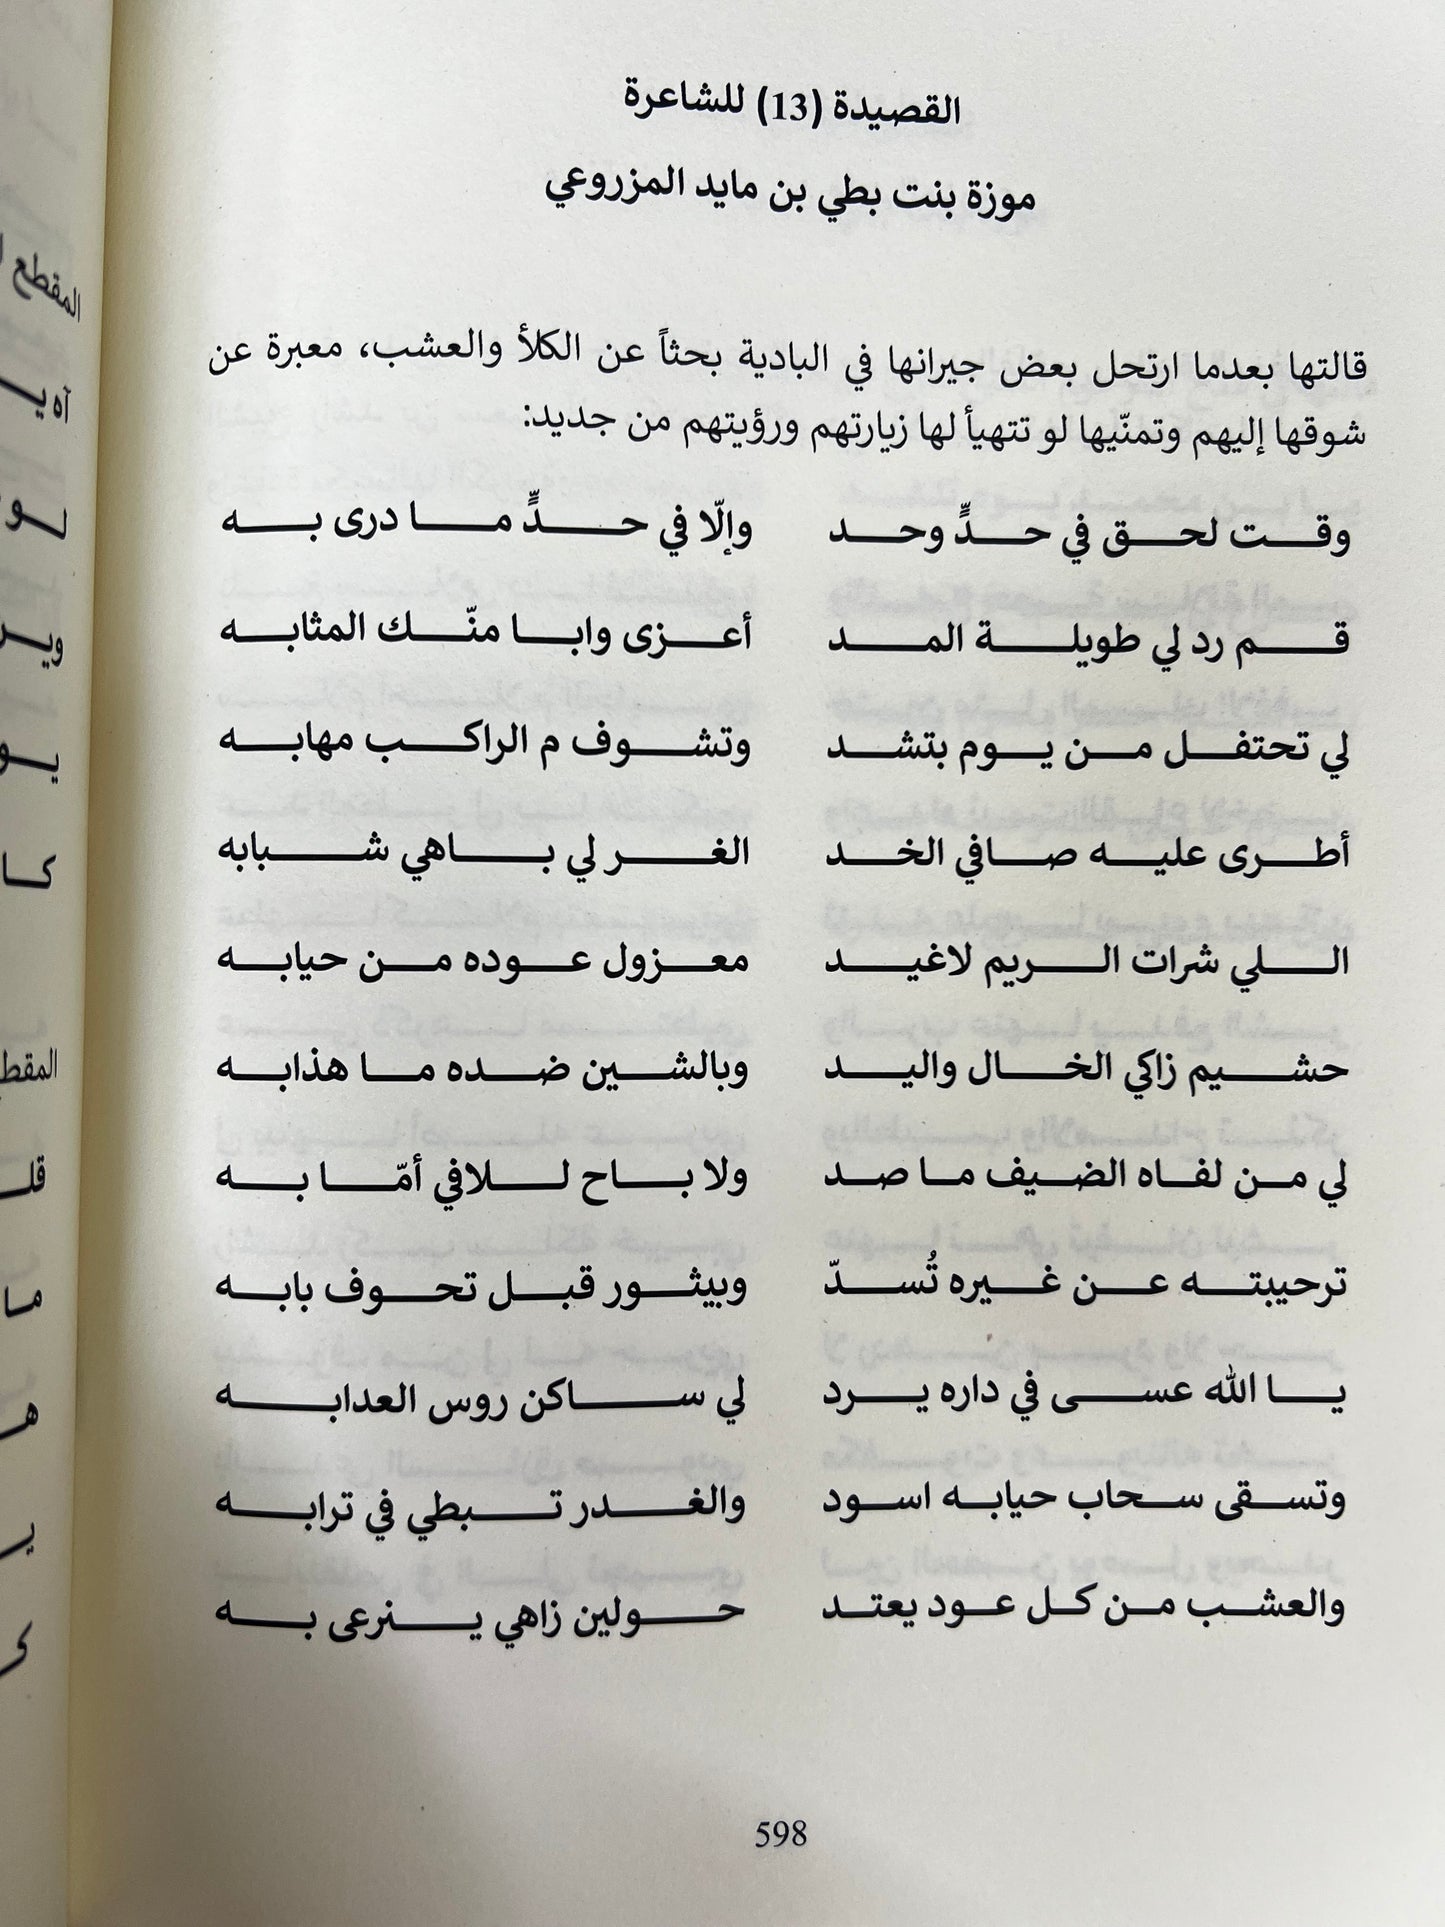 القصيدة (13) للشاعرة
موزة بنت بطي بن مايد المزروعي
قالتها بعدما ارتحل بعض جيرانها في البادية بحثاً عن الكلأ والعشب، معبرة عن
شوقها إليهم وتمنّيها لو تتهيأ لها زيارتهم ورؤيتهم من جديد:
وقت لحق في حدٍّ وحد وإلّا في حدٍّ ما درى به
قم رد لي طويلة المد أعزى وابا منّك المثابه
لي تحتفل من يوم بتشد وتشوف م الراكب مهابه
أطرى عليه صافي الخد الغر لي باهي شبابه
اللي شرات الريم لاغيد معزول عوده من حيابه
حشيم زاكي الخال واليد وبالشين ضده ما هذابه
لي من لفاه الضيف ما صد ولا باح للافي أمّا به
ترحيبته عن غيره تُسدّ وبيثور قبل تحوف بابه
يا الله عسى في داره يرد لي ساكن روس العدابه
وتسقى سحاب حيابه اسود والغدر تبطي في ترابه
والعشب من كل عود يعتد حولين زاهي ينرعى به
598
المقطع
آه
كا
المقط
ما